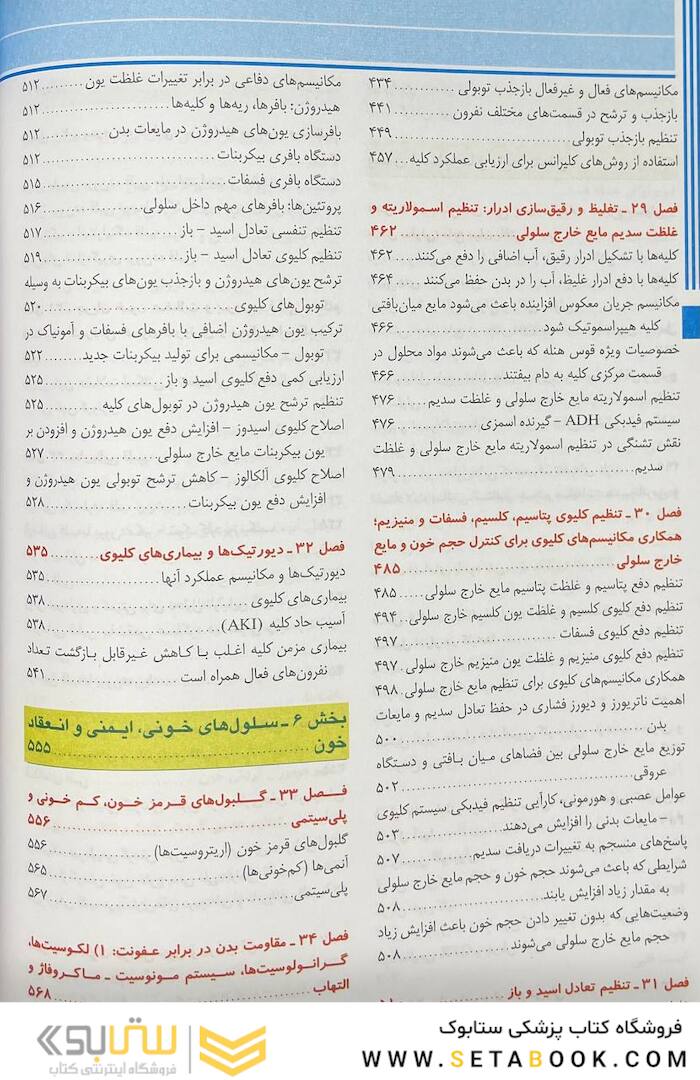 مکانیسم‌های فعال و غیرفعال بازجذب توبولی ........ ۴۳۴
بازجذب و ترشح در قسمت‌های مختلف نفرون ........ ۴۴۱
تنظیم بازجذب توبولی ........ ۴۴۹
استفاده از روش‌های کلیرانس برای ارزیابی عملکرد کلیه... ۴۵۷
فصل ۲۹ ـ تغلیظ و رقیق‌سازی ادرار: تنظیم اسمولاریته و
غلظت سدیم مایع خارج سلولی ........ ۴۶۲
کلیه‌ها با تشکیل ادرار رقیق، آب اضافی را دفع می‌کنند.... ۴۶۲
کلیه‌ها با دفع ادرار غلیظ، آب را در بدن حفظ می‌کنند ..... ۴۶۴
مکانیسم جریان معکوس افزاینده باعث می‌شود مایع میان‌بافتی
کلیه هیپراسموتیک شود ........ ۴۶۶
خصوصیات ویژه قوس هنله که باعث می‌شوند مواد محلول در
قسمت مرکزی کلیه به دام بیفتند ........ ۴۶۶
تنظیم اسمولاریته مایع خارج سلولی و غلظت سدیم ........ ۴۷۶
سیستم فیدبکی ADH – گیرنده اسمزی ........ ۴۷۶
نقش تشنگی در تنظیم اسمولاریته مایع خارج سلولی و غلظت
سدیم ........ ۴۷۹
فصل ۳۰ ـ تنظیم کلیوی پتاسیم، کلسیم، فسفات و منیزیم؛
همکاری مکانیسم‌های کلیوی برای کنترل حجم خون و مایع
خارج سلولی ........ ۴۸۵
تنظیم دفع پتاسیم و غلظت پتاسیم مایع خارج سلولی ..... ۴۸۵
تنظیم دفع کلیوی کلسیم و غلظت یون کلسیم خارج سلولی.. ۴۹۴
تنظیم دفع کلیوی فسفات ........ ۴۹۷
تنظیم دفع کلیوی منیزیم و غلظت یون منیزیم خارج سلولی. ۴۹۷
همکاری مکانیسم‌های کلیوی برای تنظیم مایع خارج سلولی. ۴۹۸
اهمیت ناتریورز و دیورز فشاری در حفظ تعادل سدیم و مایعات
بدن ........ ۵۰۰
توزیع مایع خارج سلولی بین فضاهای میان بافتی و دستگاه
عروقی ........ ۵۰۲
عوامل عصبی و هورمونی، کارآیی تنظیم فیدبکی سیستم کلیوی
– مایعات بدنی را افزایش می‌دهند ........ ۵۰۳
پاسخ‌های منسجم به تغییرات دریافت سدیم ........ ۵۰۷
شرایطی که باعث می‌شوند حجم خون و حجم مایع خارج سلولی
به مقدار زیاد افزایش یابند ........ ۵۰۸
وضعیت‌هایی که بدون تغییر دادن حجم خون باعث افزایش زیاد
حجم مایع خارج سلولی می‌شوند ........ ۵۰۸
فصل ۳۱ ـ تنظیم تعادل اسید و باز
مکانیسم‌های دفاعی در برابر تغییرات غلظت یون
هیدروژن: بافرها، ریه‌ها و کلیه‌ها ........ ۵۱۲
بافرسازی یون‌های هیدروژن در مایعات بدن ........ ۵۱۲
دستگاه بافری بیکربنات ........ ۵۱۲
دستگاه بافری فسفات ........ ۵۱۵
پروتئین‌ها: بافرهای مهم داخل سلولی ........ ۵۱۶
تنظیم تنفسی تعادل اسید – باز ........ ۵۱۷
تنظیم کلیوی تعادل اسید – باز ........ ۵۱۹
ترشح یون‌های هیدروژن و بازجذب یون‌های بیکربنات به وسیله
توبول‌های کلیوی ........ ۵۲۰
ترکیب یون هیدروژن اضافی با بافرهای فسفات و آمونیاک در
توبول – مکانیسمی برای تولید بیکربنات جدید ........ ۵۲۲
ارزیابی کمی دفع کلیوی اسید و باز ........ ۵۲۵
تنظیم ترشح یون هیدروژن در توبول‌های کلیه ........ ۵۲۵
اصلاح کلیوی اسیدوز – افزایش دفع یون هیدروژن و افزودن بر
یون بیکربنات مایع خارج سلولی ........ ۵۲۷
اصلاح کلیوی آلکالوز – کاهش ترشح توبولی یون هیدروژن و
افزایش دفع یون بیکربنات ........ ۵۲۸
فصل ۳۲ ـ دیورتیک‌ها و بیماری‌های کلیوی ........ ۵۳۵
دیورتیک‌ها و مکانیسم عملکرد آنها ........ ۵۳۵
بیماری‌های کلیوی ........ ۵۳۸
آسیب حاد کلیه (AKI) ........ ۵۳۸
بیماری مزمن کلیه اغلب با کاهش غیرقابل بازگشت تعداد
نفرون‌های فعال همراه است ........ ۵۴۱
بخش ۶ ـ سلول‌های خونی، ایمنی و انعقاد
خون ........ ۵۵۵
فصل ۳۳ ـ گلبول‌های قرمز خون، کم خونی و
پلی‌سیتمی ........ ۵۵۶
گلبول‌های قرمز خون (اریتروسیت‌ها) ........ ۵۵۶
آنمی‌ها (کم‌خونی‌ها) ........ ۵۶۵
پلی‌سیتمی ........ ۵۶۷
فصل ۳۴ ـ مقاومت بدن در برابر عفونت: ۱) لکوسیت‌ها،
گرانولوسیت‌ها، سیستم مونوسیت ـ ماکروفاژ و
التهاب ........ ۵۶۸
فروشگاه کتاب پزشکی ستابوک
WWW.SETABOOK.COM
ستابوک
فروشگاه اینترنتی کتاب